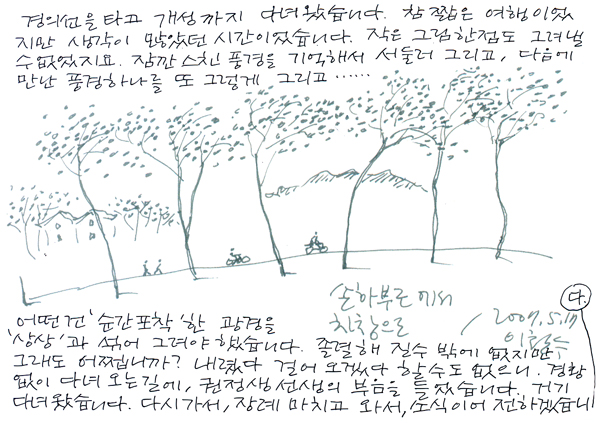 경의선을 타고 개성까지 다녀왔습니다. 참 짧은 여행이었
지만 생각이 많았던 시간이었습니다. 작은 그림 한점도 그려낼
수 없었지요. 잠깐 스친 풍경을 기억해서 서둘러 그리고, 다음에
만난 풍경하나를 또 그렇게 그리고……
손하부근에서
차창으로
2007.5.17
이철수
어떤건 '순간포착'한 광경을
'상상'과 섞어 그려야 했습니다. 졸렬해 질수 밖에 없지만
그래도 어쩝니까? 내렸다 걸어 오겠다 할 수도 없으니. 경황
없이 다녀 오는길에, 권정생 선생의 부음을 들었습니다. 거기
다녀왔습니다. 다시가서, 장례 마치고 와서, 소식이어 전하겠습니
다.